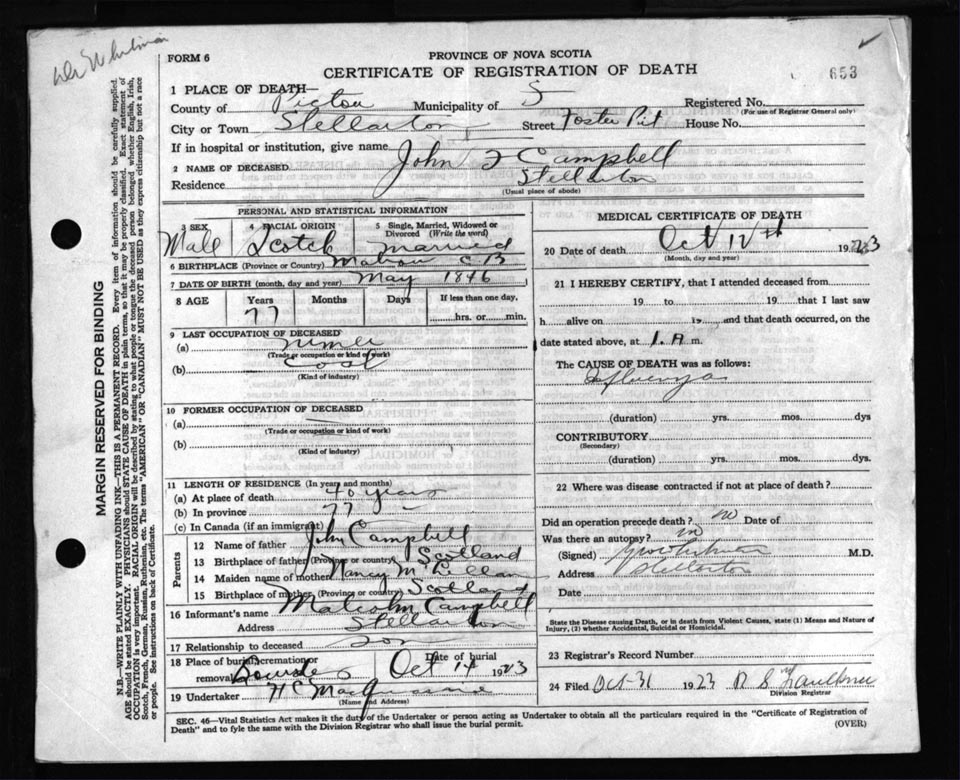 Dr Whitman
FORM 6
PROVINCE OF NOVA SCOTIA
CERTIFICATE OF REGISTRATION OF DEATH
653
1 PLACE OF DEATH—
County of Pictou Municipality of 5 Registered No.
(For use of Registrar General only)
City or Town Stellarton Street Foster Pit House No.
If in hospital or institution, give name
2 NAME OF DECEASED John J Campbell
Residence Stellarton
(Usual place of abode)
PERSONAL AND STATISTICAL INFORMATION
3 SEX 4 RACIAL ORIGIN 5 Single, Married, Widowed or Divorced (Write the word)
Male Scotch Married
6 BIRTHPLACE (Province or Country) C B
7 DATE OF BIRTH (month, day and year) May 1846
8 AGE Years Months Days If less than one day,
77 hrs. or min.
9 LAST OCCUPATION OF DECEASED
(a) Miner
(Trade or occupation or kind of work)
(b) Coal
(Kind of industry)
10 FORMER OCCUPATION OF DECEASED
(a)
(Trade or occupation or kind of work)
(b)
(Kind of industry)
11 LENGTH OF RESIDENCE (In years and months)
(a) At place of death 40 years
(b) In province 77
(c) In Canada (if an immigrant)
Parents
12 Name of father John Campbell
13 Birthplace of father (Province or country) Scotland
14 Maiden name of mother Nancy McLellan
15 Birthplace of mother (Province or country) Scotland
16 Informant's name Malcolm Campbell
Address Stellarton
17 Relationship to deceased Son
18 Place of burial, cremation or removal Date of burial
Oct 14 1923
19 Undertaker H C
(Name and Address)
MEDICAL CERTIFICATE OF DEATH
20 Date of death Oct 12th 1923
(Month, day and year)
21 I HEREBY CERTIFY, that I attended deceased from
19 to 19 that I last saw
h alive on 19 and that death occurred, on the
date stated above, at 1. A m.
The CAUSE OF DEATH was as follows:
Influenza
(duration) yrs. mos. dys
CONTRIBUTORY
(Secondary)
(duration) yrs. mos. dys.
22 Where was disease contracted if not at place of death?
Did an operation precede death? no Date of
Was there an autopsy? no
(Signed) Whitman M.D.
Address Stellarton
Date
State the Disease causing Death, or in death from Violent Causes, state (1) Means and Nature of
Injury, (2) whether Accidental, Suicidal or Homicidal.
23 Registrar's Record Number
24 Filed Oct 31 1923 R S Faulkner
Division Registrar
SEC. 46—Vital Statistics Act makes it the duty of the Undertaker or person acting as Undertaker to obtain all the particulars required in the "Certificate of Registration of
Death" and to fyle the same with the Division Registrar who shall issue the burial permit. (OVER)
MARGIN RESERVED FOR BINDING
N.B.—WRITE PLAINLY WITH UNFADING INK—THIS IS A PERMANENT RECORD. Every item of information should be carefully supplied.
AGE should be stated EXACTLY. PHYSICIANS should STATE CAUSE OF DEATH in plain terms, so that it may be properly classified. Exact statement of
OCCUPATION is very important. RACIAL ORIGIN will be described by stating to what people or tongue the deceased person belonged whether English, Irish,
Scotch, French, German, Russian, Ruthenian, etc. The terms "AMERICAN" OR "CANADIAN" MUST NOT BE USED as they express citizenship but not a race
or people. See instructions on back of Certificate.